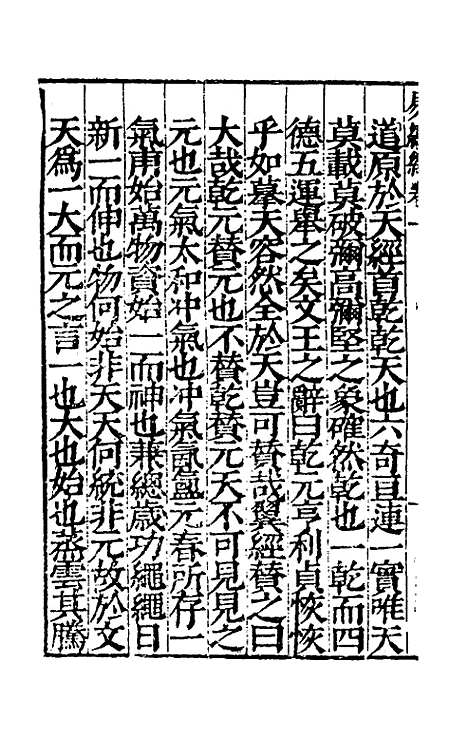 道原於天經首乾乾天也六奇自連一實唯天
莫載莫破彌高彌堅之象確然乾也一乾而四
德五運舉之矣文王之辭曰乾元亨利貞恢恢
乎如摹天容然全於天豈可贊哉翼經贊之曰
大哉乾元贊元也不贊乾贊元天不可見見之
元也元氣太和冲氣也冲氣氤氳元春所存一
氣甫始萬物資始一而神也兼總歲功繩繩日
新一而伸也物何始非天天何統非元故於文
天爲一大而元之言一也大也始也蒸雲其騰